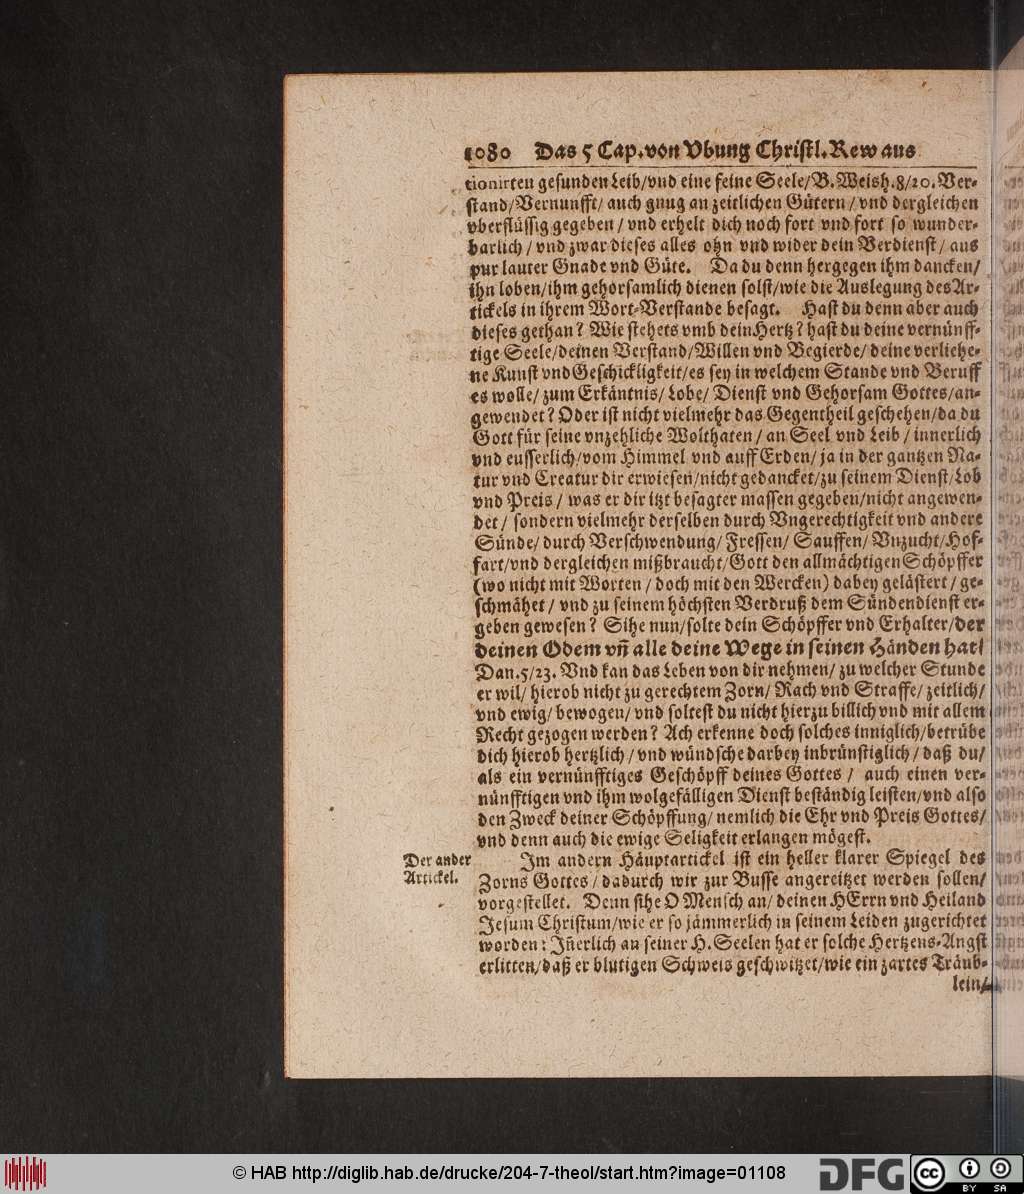 1080 Das 5 Cap. von Vbung Christl. Rew aus
tionirten gesunden Leib/vnd eine feine Seele/B. Weish. 8/20. Ver-
stand/Vernunfft/ auch gnug an zeitlichen Gütern/ vnd dergleichen
vberflüssig gegeben/ vnd erhelt dich noch fort vnd fort so wunder-
barlich/ vnd zwar dieses alles ohn vnd wider dein Verdienst/ aus
pur lauter Gnade vnd Güte. Da du denn hergegen ihm dancken/
ihn loben/ihm gehorsamlich dienen solst/wie die Auslegung des Ar-
tickels in ihrem Wort-Verstande besagt. Hast du denn aber auch
dieses gethan? Wie stehets vmb dein Hertz? hast du deine vernünff-
tige Seele/deinen Verstand/Willen vnd Begierde/deine verliehe-
ne Kunst vnd Geschickligkeit/es sey in welchem Stande vnd Beruff
es wolle/ zum Erkäntnis/ Lobe/ Dienst vnd Gehorsam Gottes/an-
gewendet? Oder ist nicht vielmehr das Gegentheil geschehen/da du
Gott für seine vnzehliche Wolthaten/ an Seel vnd Leib/ innerlich
vnd eusserlich/vom Himmel vnd auff Erden/ ja in der gantzen Na-
tur vnd Creatur dir erwiesen/nicht gedancket/zu seinem Dienst/Lob
vnd Preis/ was er dir itzt besagter massen gegeben/nicht angewen-
det/ sondern vielmehr derselben durch Vngerechtigkeit vnd andere
Sünde/ durch Verschwendung/ Fressen/ Sauffen/ Vnzucht/ Hof-
fart/vnd dergleichen mißbraucht/Gott den allmächtigen Schöpffer
(wo nicht mit Worten/ doch mit den Wercken) dabey gelästert/ ge-
schmähet/ vnd zu seinem höchsten Verdruß dem Sündendienst er-
geben gewesen? Sihe nun/solte dein Schöpffer vnd Erhalter/der
deinen Odem vn̄ alle deine Wege in seinen Händen hat/
Dan. 5/23. Vnd kan das Leben von dir nehmen/ zu welcher Stunde
er wil/ hierob nicht zu gerechtem Zorn/ Rach vnd Straffe/ zeitlich/
vnd ewig/ bewogen/ vnd soltest du nicht hierzu billich vnd mit allem
Recht gezogen werden? Ach erkenne doch solches inniglich/betrübe
dich hierob hertzlich/ vnd wündsche darbey inbrünstiglich/ daß du/
als ein vernünfftiges Geschöpff deines Gottes/ auch einen ver-
nünfftigen vnd ihm wolgefälligen Dienst beständig leisten/vnd also
den Zweck deiner Schöpffung/ nemlich die Ehr vnd Preis Gottes/
vnd denn auch die ewige Seligkeit erlangen mögest.
Der ander
Artickel.
Im andern Häuptartickel ist ein heller klarer Spiegel des
Zorns Gottes/ dadurch wir zur Busse angereitzet werden sollen/
vorgestellet. Denn sihe O Mensch an/ deinen HErrn vnd Heiland
Jesum Christum/wie er so jämmerlich in seinem Leiden zugerichtet
worden: Iñerlich an seiner H. Seelen hat er solche Hertzens-Angst
erlitten/daß er blutigen Schweis geschwitzet/wie ein zartes Träub-
lein/
© HAB http://diglib.hab.de/drucke/204-7-theol/start.htm?image=01108
DFG
cc
BY SA